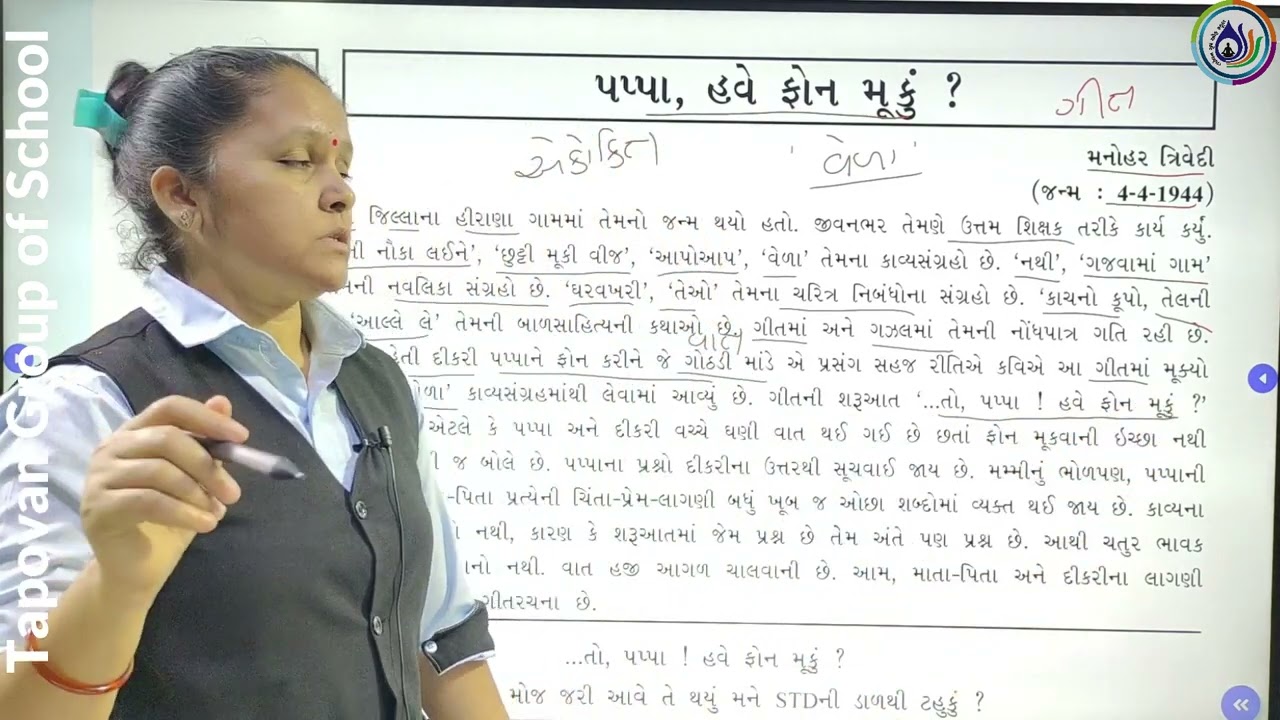 Tapovan Group of School
પપ્પા, હવે ફોન મૂકું ?
ગીત
એકોકિત
'વેળા'
મનોહર ત્રિવેદી
(જન્મ : 4-4-1944)
જિલ્લાના હીરાણા ગામમાં તેમનો જન્મ થયો હતો. જીવનભર તેમણે ઉત્તમ શિક્ષક તરીકે કાર્ય કર્યું.
નૌકા લઈને', 'છુટ્ટી મૂકી વીજ', 'આપોઆપ', 'વેળા' તેમના કાવ્યસંગ્રહો છે. 'નથી', 'ગજવામાં ગામ'
નવલિકા સંગ્રહો છે. 'ઘરવખરી', 'તેઓ' તેમના ચરિત્ર નિબંધોના સંગ્રહો છે. 'કાચનો કૂપો, તેલની
'આલ્લે લે' તેમની બાળસાહિત્યની કથાઓ છે. ગીતમાં અને ગઝલમાં તેમની નોંધપાત્ર ગતિ રહી છે.
વાત
દીકરી પપ્પાને ફોન કરીને જે ગોઠડી માંડે એ પ્રસંગ સહજ રીતિએ કવિએ આ ગીતમાં મૂક્યો
કાવ્યસંગ્રહમાંથી લેવામાં આવ્યું છે. ગીતની શરૂઆત '...તો, પપ્પા ! હવે ફોન મૂકું ?'
એટલે કે પપ્પા અને દીકરી વચ્ચે ઘણી વાત થઈ ગઈ છે છતાં ફોન મૂકવાની ઇચ્છા નથી
જ બોલે છે. પપ્પાના પ્રશ્નો દીકરીના ઉત્તરથી સૂચવાઈ જાય છે. મમ્મીનું ભોળપણ, પપ્પાની
-પિતા પ્રત્યેની ચિંતા-પ્રેમ-લાગણી બધું ખૂબ જ ઓછા શબ્દોમાં વ્યક્ત થઈ જાય છે. કાવ્યના
નથી, કારણ કે શરૂઆતમાં જેમ પ્રશ્ન છે તેમ અંતે પણ પ્રશ્ન છે. આથી ચતુર ભાવક
નથી. વાત હજી આગળ ચાલવાની છે. આમ, માતા-પિતા અને દીકરીના લાગણી
ગીતરચના છે.
...તો, પપ્પા ! હવે ફોન મૂકું ?
મોજ જરી આવે તે થયું મને STDની ડાળથી ટહુકું ?